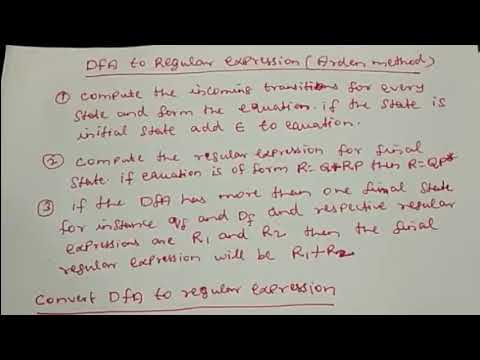 DfA to Regular expression (Arden method)
① compute the incoming transitions for every
state and form the equation. if the state is
initial state add ∈ to equation.
② compute the regular expression for final
state. if equation is of form R=Q+RP then R=QP*
③ if the DfA has more than one final state
for instance qf and Df and respective regular
expressions are R1 and R2 then the final
regular expression will be R1+R2
Convert DfA to regular expression